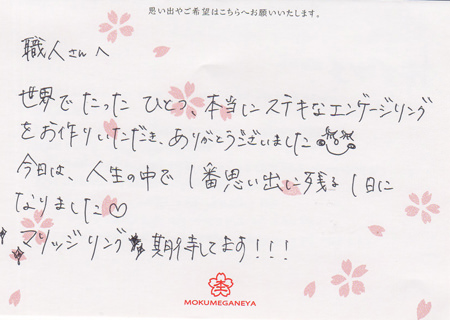 思い出やご希望はこちらへお願いいたします。
職人さんへ
世界でたったひとつ、本当にステキなエンゲージリング
をお作りいただき、ありがとうございました
今日は、人生の中で1番思い出に残る1日に
なりました♡
マリッジリング期待してます!!!
MOKUMEGANEYA